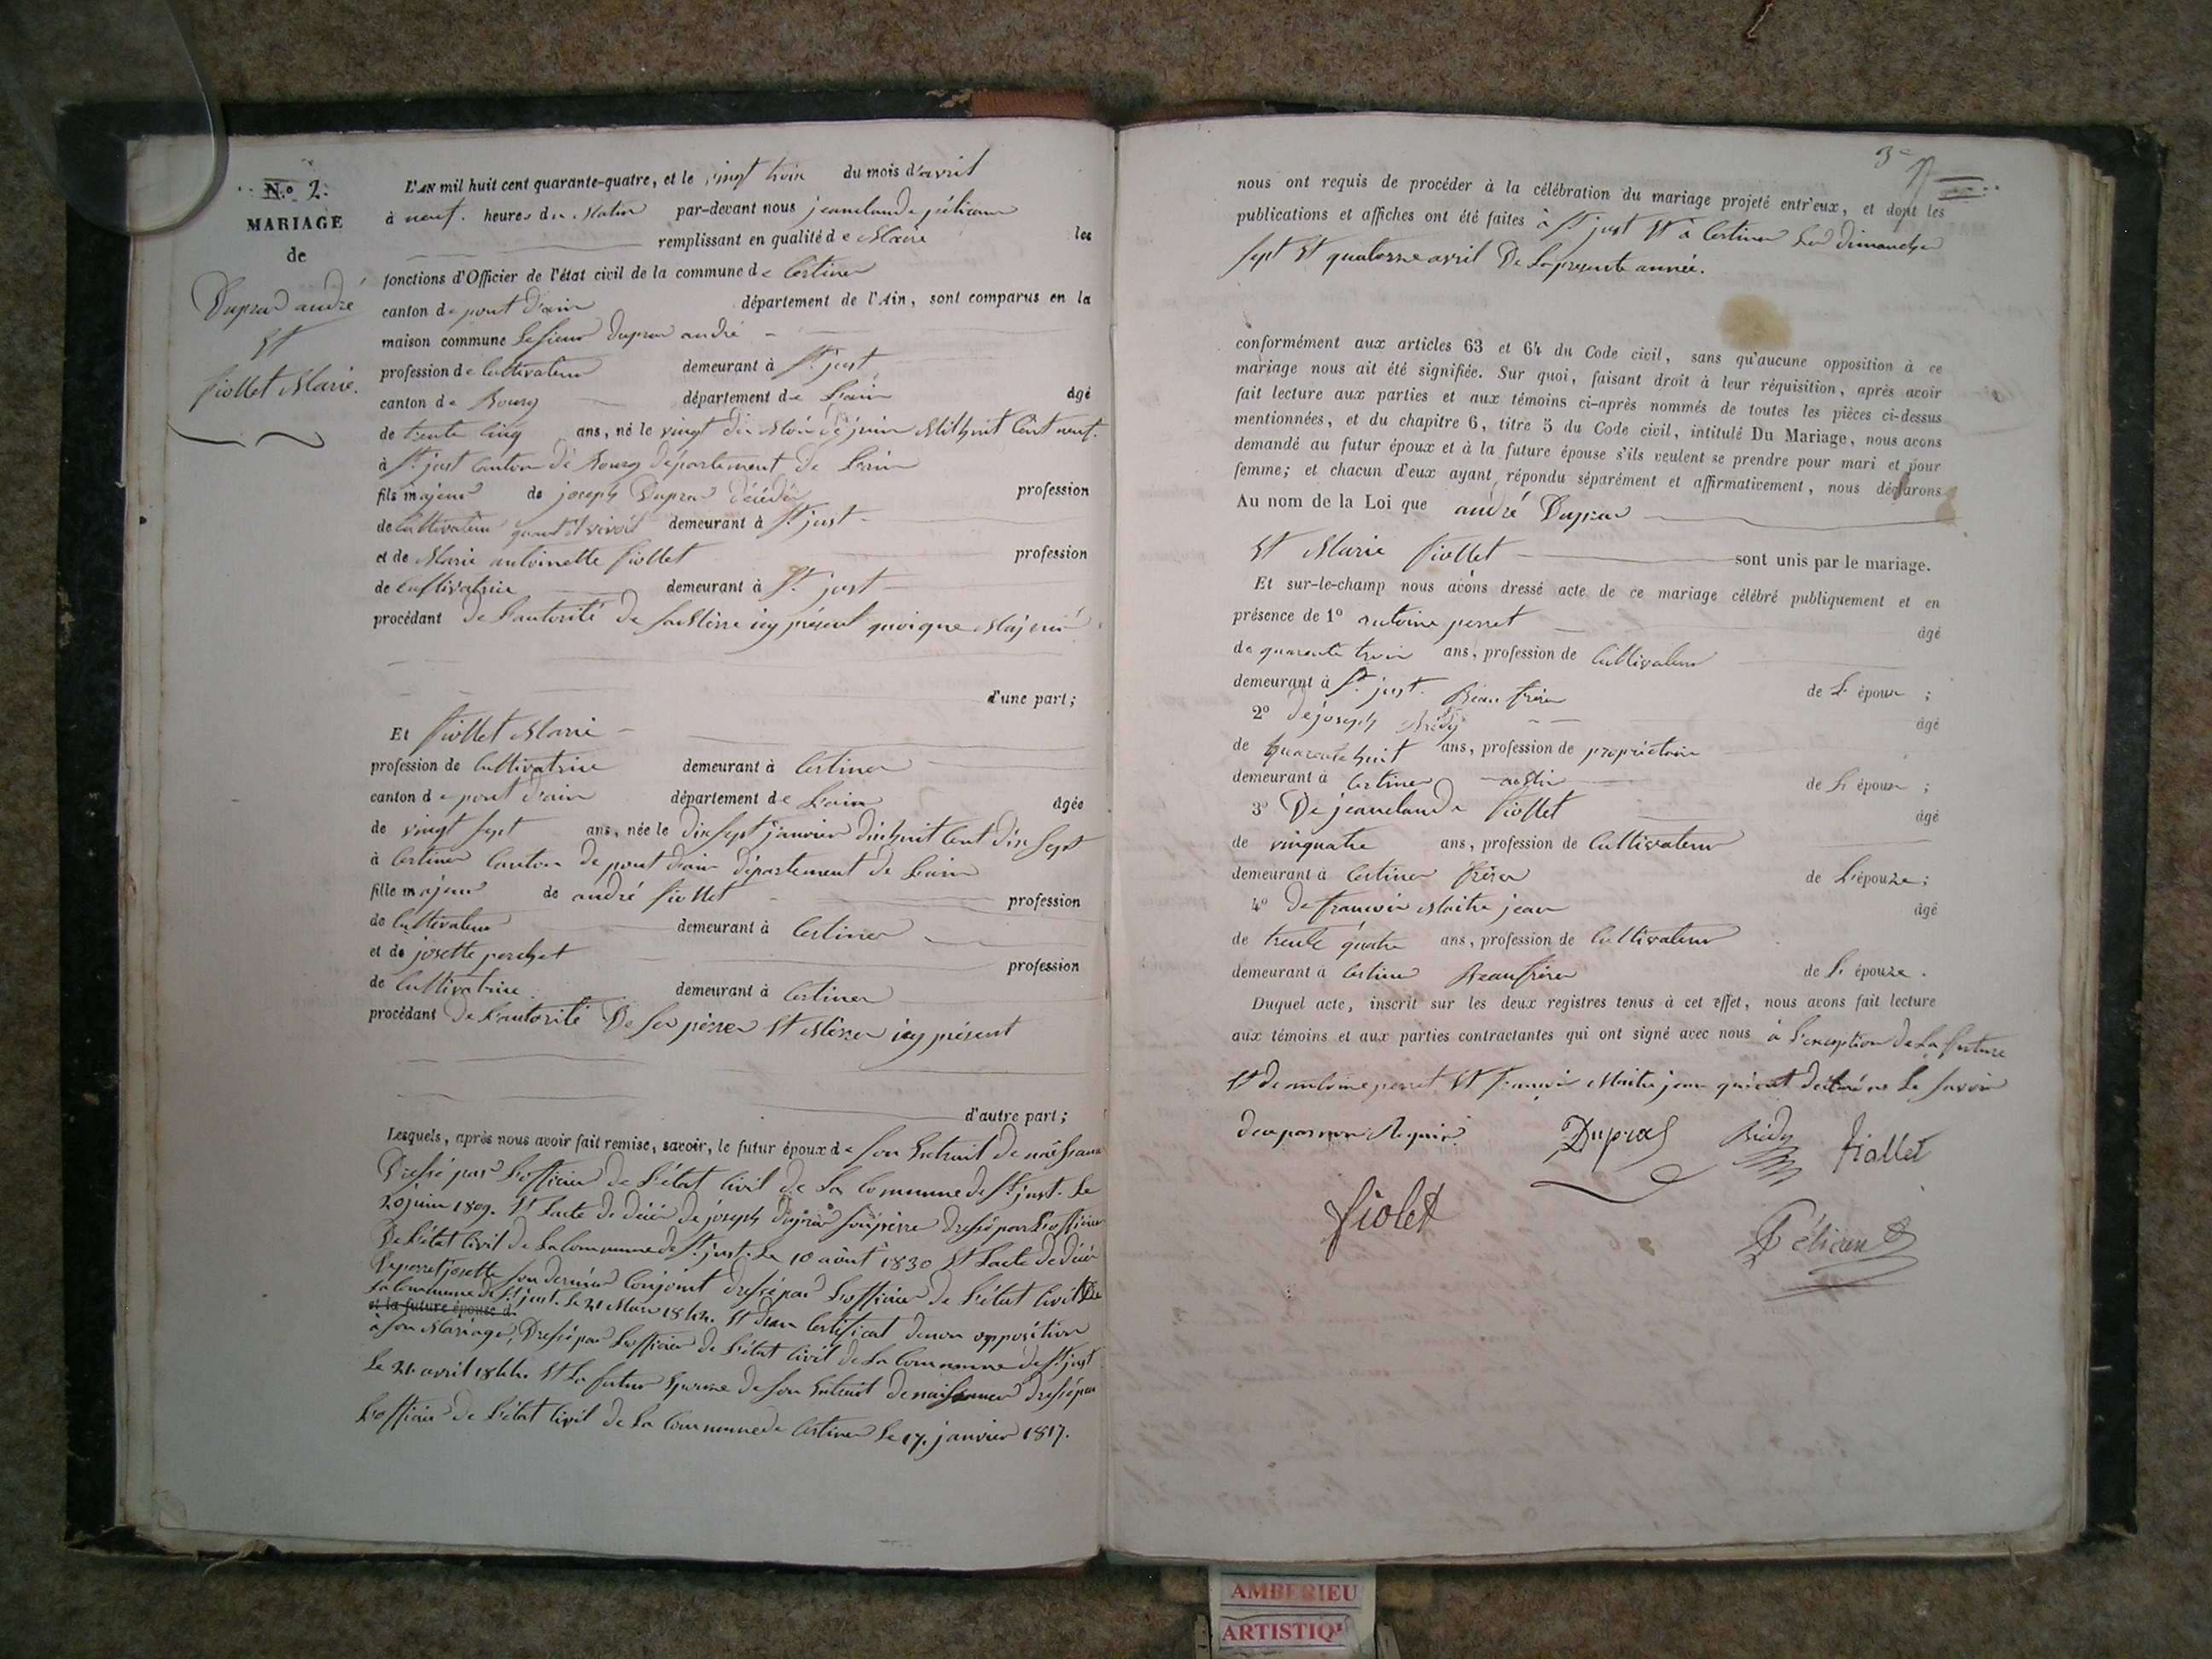 N.o 2.
MARIAGE
de
Dupras andré
Et
fiollet Marie.
L'AN mil huit cent quarante-quatre, et le vingt trois du mois d'avril
à neuf heures du Matin par-devant nous jeanclaude pélicand
remplissant en qualité de Maire les
fonctions d'Officier de l'état civil de la commune de Certines
canton de pont d'ain département de l'Ain, sont comparus en la
maison commune Le sieur dupras andré
profession de Cultivateur demeurant à St. just
canton de Bourg département de L'ain âgé
de trente Cinq ans, né le vingt du Mois de juin Mil huit Cent neuf.
à St. just Canton de Bourg département de L'ain
fils majeur de joseph Dupras décédé profession
de Cultivateur quand il vivait demeurant à St. just
et de Marie antoinette fiollet profession
de Cultivatrice demeurant à St. just
procédant de L'autorité de Sa Mère icy présent quoique Majeur
d'une part;
Et fiollet Marie
profession de Cultivatrice demeurant à Certines
canton de pont d'ain département de L'ain âgée
de vingt sept ans, née le dix sept janvier dix huit Cent dix Sept
à Certines Canton de pont d'ain département de L'ain
fille majeur de andré fiollet profession
de Cultivateur demeurant à Certines
et de josette perchet profession
de Cultivatrice demeurant à Certines
procédant de L'autorité De Ses père Et Mère icy présent
d'autre part;
Lesquels, après nous avoir fait remise, savoir, le futur époux de Son Extrait de naissance
Dressé par L'officier de L'état Civil de La Commune de St. just. Le
20 juin 1809. Et L'acte de décès de joseph dupras Son père dressé par L'officier
De L'état Civil de La Commune de St. just. Le 10 août 1830 Et L'acte de décès
De perret josette Son dernier Conjoint dressé par L'officier de L'état Civil De
La Commune de St. just. Le 21 Mars 1842. Et d'un Certificat de non opposition
et la future épouse d
a Son Mariage, Dressé par L'officier de L'état Civil de La Commune de St. just
Le 21 avril 1844. Et La futur Epouse de Son Extrait de naissance dressé par
L'officier de L'état Civil de La Commune de Certines Le 17. janvier 1817.
3e
nous ont requis de procéder à la célébration du mariage projeté entr'eux, et dont les
publications et affiches ont été faites à St. just Et à Certines Les Dimanches
Sept Et quatorze avril De La présente année.
conformément aux articles 63 et 64 du Code civil, sans qu'aucune opposition à ce
mariage nous ait été signifiée. Sur quoi, faisant droit à leur réquisition, après avoir
fait lecture aux parties et aux témoins ci-après nommés de toutes les pièces ci-dessus
mentionnées, et du chapitre 6, titre 5 du Code civil, intitulé Du Mariage, nous avons
demandé au futur époux et à la future épouse s'ils veulent se prendre pour mari et pour
femme; et chacun d'eux ayant répondu séparément et affirmativement, nous déclarons
Au nom de la Loi que andré Dupras
Et Marie fiollet sont unis par le mariage.
Et sur-le-champ nous avons dressé acte de ce mariage célébré publiquement et en
présence de 1o antoine perret âgé
de quarante trois ans, profession de Cultivateur
demeurant à St. just. Beau frère de L' époux ;
2o de joseph Brédy âgé
de quarante huit ans, profession de propriétaire
demeurant à Certines de L' époux ;
3o De jeanclaude fiollet âgé
de vinquatre ans, profession de Cultivateur
demeurant à Certines frère de L'épouze;
4o De francois Maitre jean âgé
de trente quatre ans, profession de Cultivateur
demeurant à Certines Beaufrère de L' épouze.
Duquel acte, inscrit sur les deux registres tenus à cet effet, nous avons fait lecture
aux témoins et aux parties contractantes qui ont signé avec nous à L'exception de La future
Et de antoine perret Et francois Maitre jean qui ont déclaré ne Le Savoir
de ce par nous Requis.
Dupras Brédy fiallet
fiolet
Pélicand
AMBERIEU
ARTISTIQ